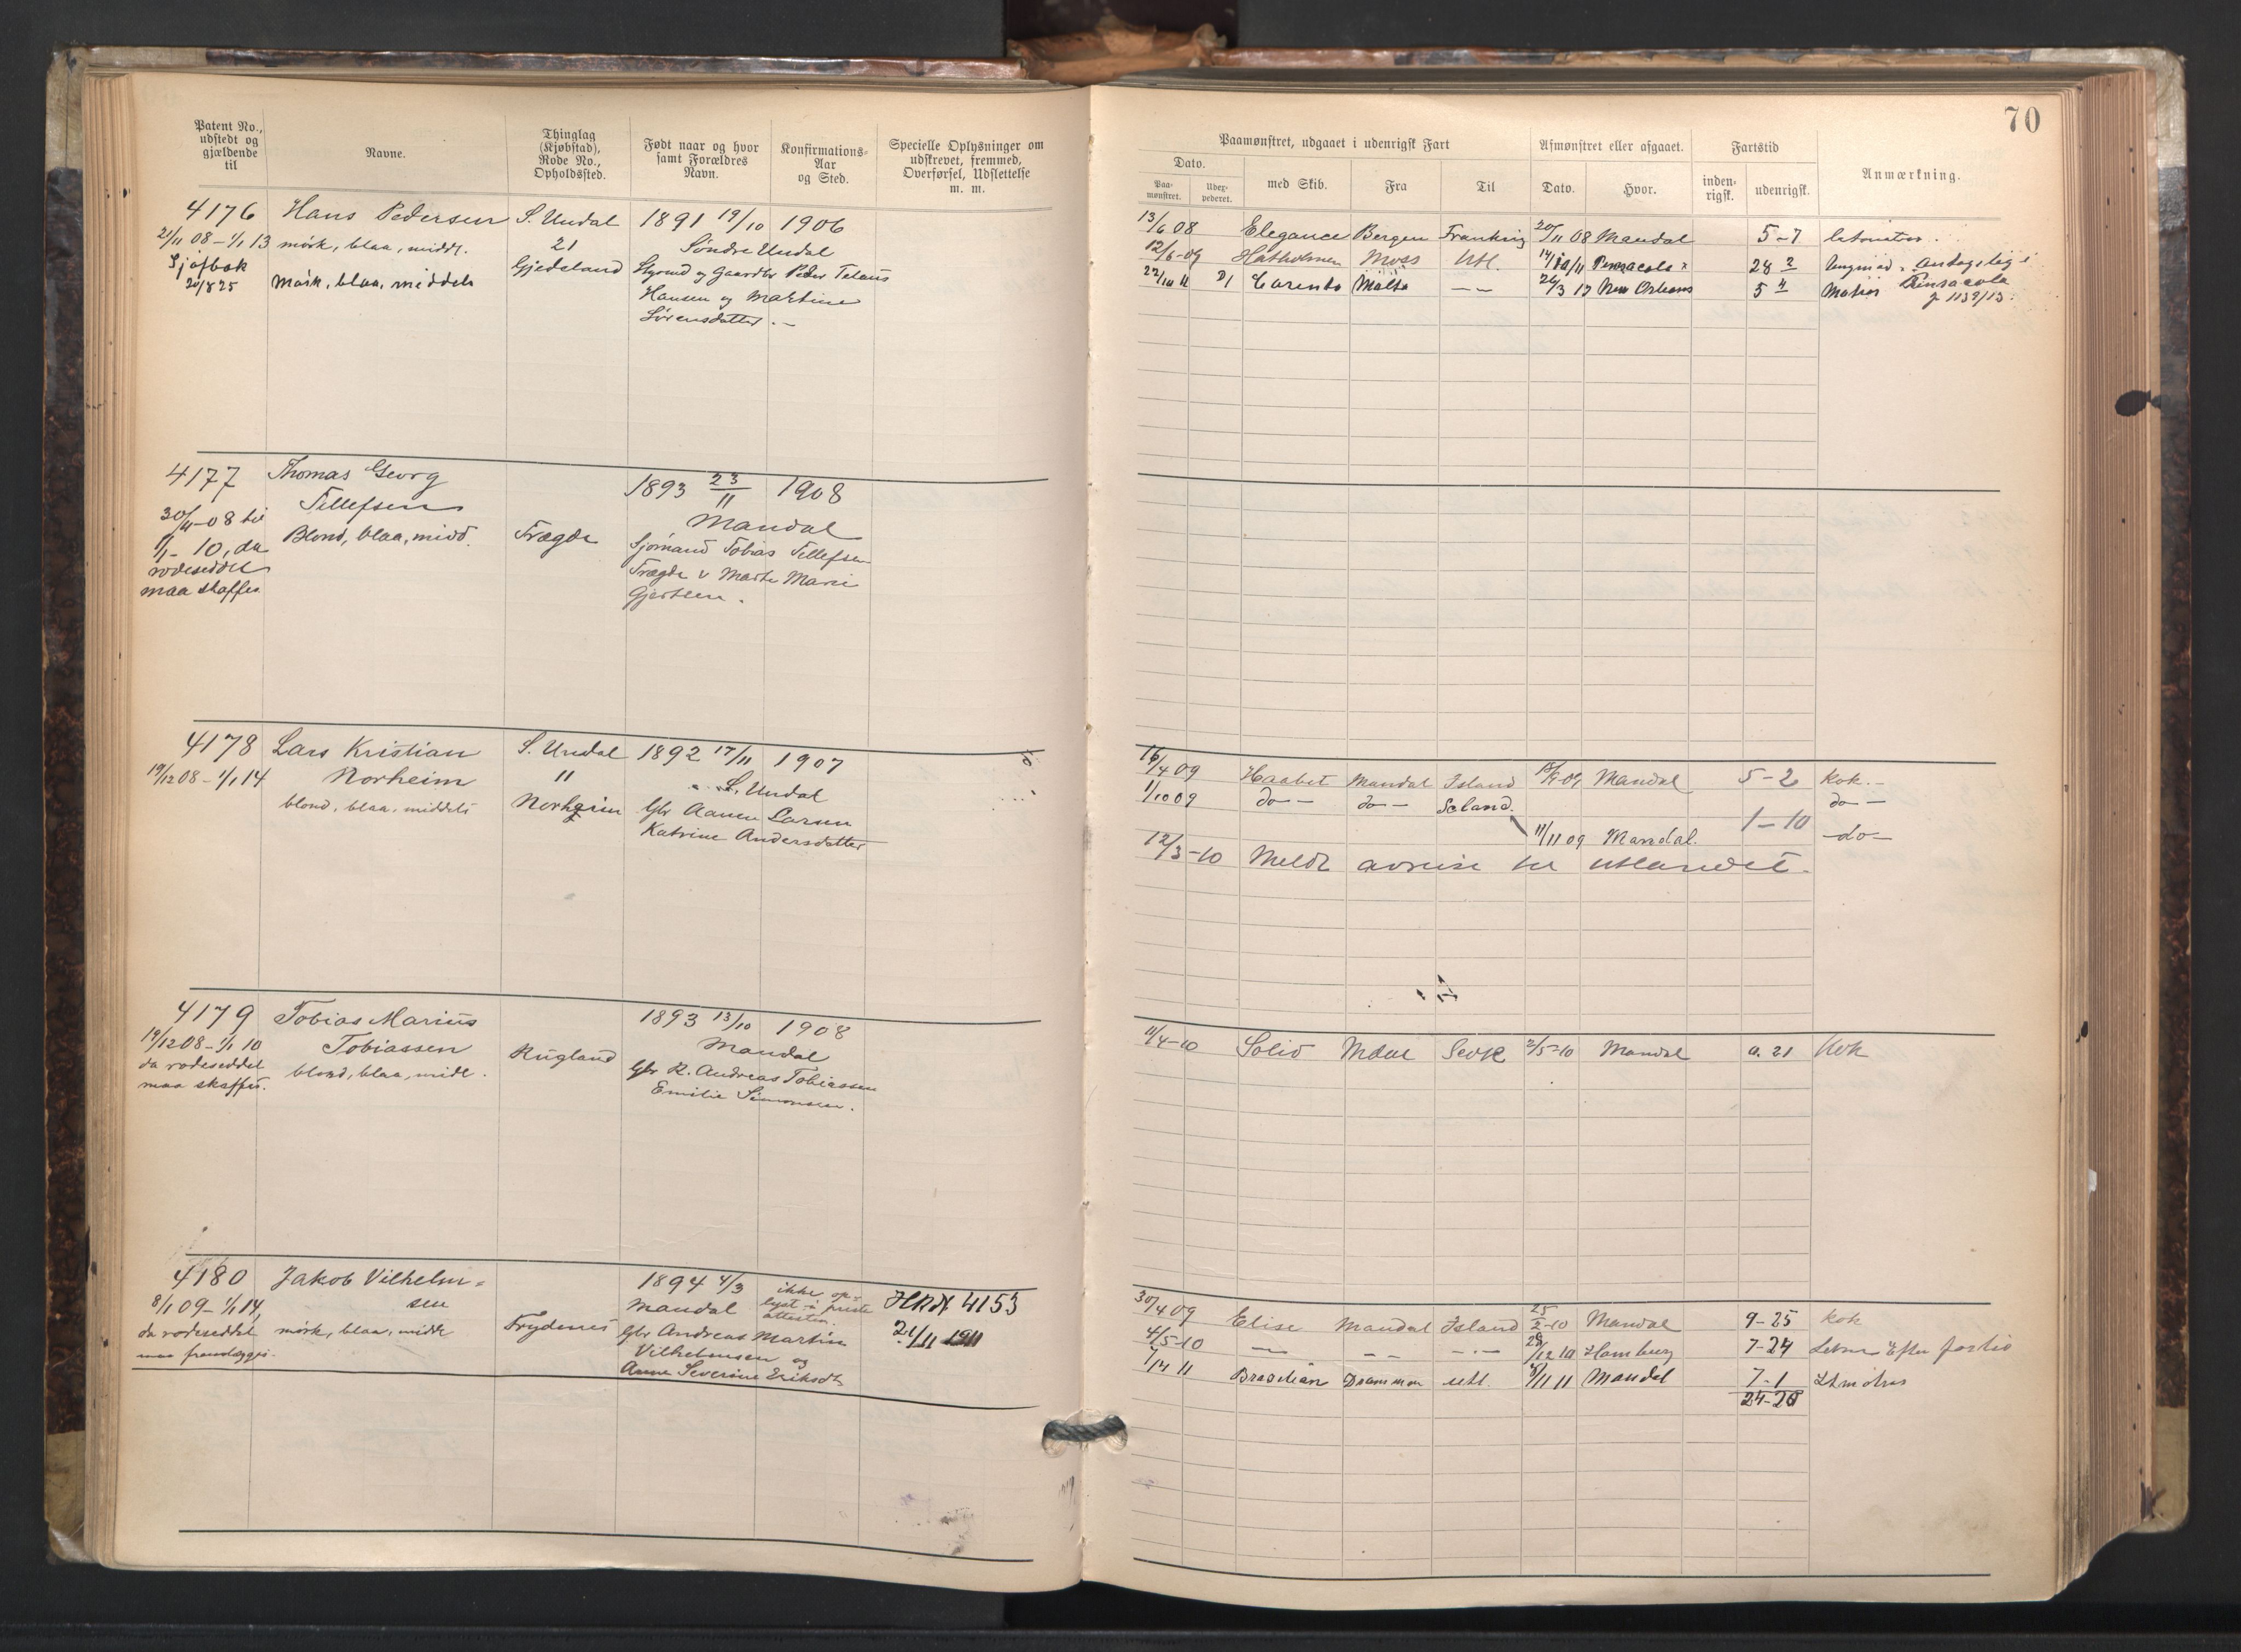 70
Patent No., udstedt og gjældende til
Navne.
Thinglag (Kjøbstad), Rode No., Opholdssted.
Født naar og hvor samt Forældres Navn.
Konfirmations-Aar og Sted.
Specielle Oplysninger om udskrevet, fremmed, Overførsel, Udslettelse m. m.
Paamønstret, udgaaet i udenrigsk Fart
Dato.
Paa-mønstret.
med Skib.
Fra
Til
Afmønstret eller afgaaet.
Dato.
Hvor.
Fartstid
inden-rigsk.
udenrigsk.
Anmærkning.
4176 Hans Pedersen S. Undal 1891 19/10 1906
21/11 08 – 1/1 13 mörk, blaa, middl. 21 Söndre Undal
Sjöfbok Gjedsland
20/8 25 Mörk, blaa, middels
Hansen og Martine
Sörensdatter
13/6 08 Elegance Bergen Frankrig 20/11 08 Mandal 5–7
12/6–09 Hatholmen Moss Utl. Pensacola 28
22/10 11 Malta 5 Pensacola
New Orleans
j 1139/13
4177 Thomas Georg 1893 23/11 1908
Tellefsen Mandal
30/11–08 til Blond, blaa, midd. Trægde Sjömand Tobias Tellefsen
1/1– 10, da Trægde
rodeseddel Gjertsen.
maa skaffes
4178 Lars Kristian S. Undal 1892 17/11 1907
19/12 08 – 1/1 14 Norheim 11 S. Undal
blond, blaa, middels Norheim Gbr Aanen Larsen
Katrine Andersdatter
16/4 09 Haabet Mandal Island Mandal 5–2 Kok.–
1/10 09 do – do – do –
11/11 09 Mandal. 1–10 –do–
12/3–10 Meldt avreise til utlandet.
4179 Tobias Marius 1893 13/10 1908
19/12 08 – 1/1 10 Tobiassen Rugland Mandal
da rodeseddel blond, blaa, midl. Gbr R. Andreas Tobiassen
maa skaffes. Emilie Simonsen.
11/4–10 Solid Mdal 2/5–10 Mandal 0. 21 Kok
4180 Jakob Vilhelm= 1894 4/3 ikke op=
8/1 09 – 1/1 14, sen Mandal lyst i preste
da rodeseddel mörk, blaa, midl Frydenes attesten.
maa fremlægges. Gbr Andreas Martin
Vilhelmsen og
Anne Severine Eriksdt
4153
21/11 1911
30/4 09 Elise Mandal Island 25/2–10 Mandal 9–25 kok
4/5–10 Hamburg 7–24
Brasilian Drammen utl. Mandal 7–1